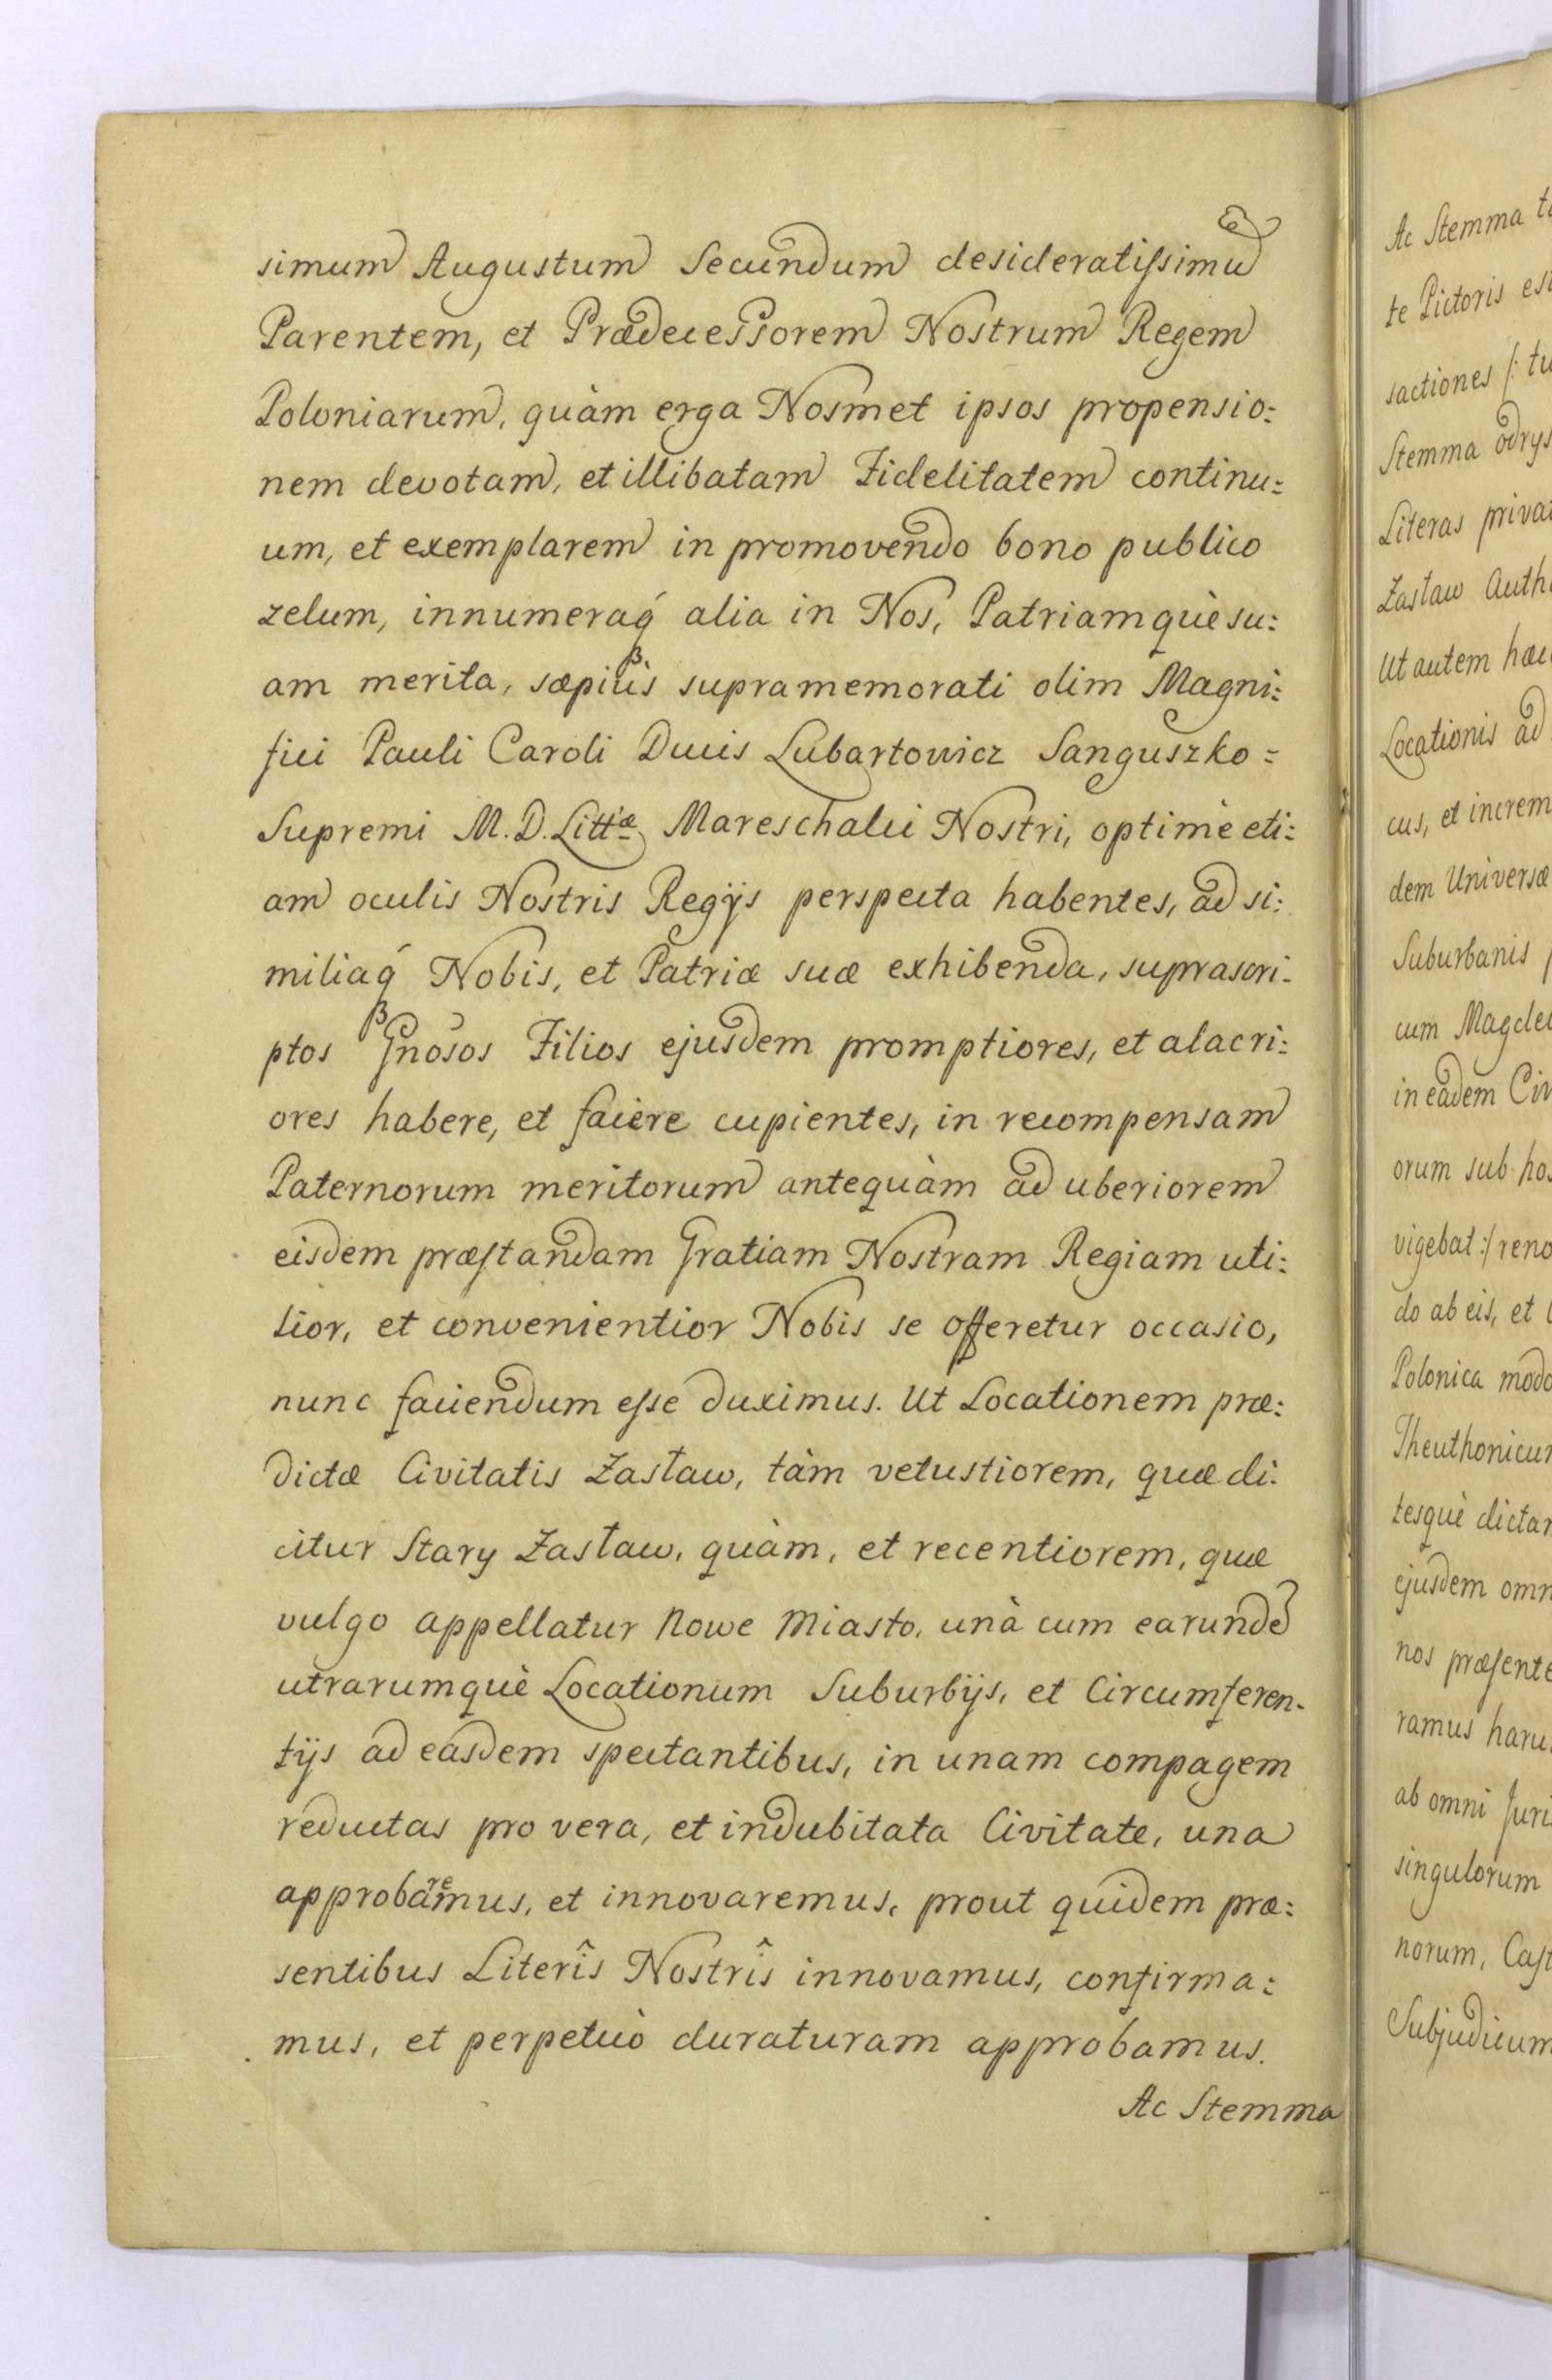 simum Augustum Secundum desideratissimū
Parentem, et Prædecessorem Nostrum Regem
Poloniarum, quàm erga Nosmet ipsos propensio:
nem devotam, et illibatam Fidelitatem continu:
um, et exemplarem in promovendo bono publico
zelum, innumeraq́ alia in Nos, Patriamquè su:
am merita, sæpiùs supramemorati olim Magni:
fici Pauli Caroli Ducis Lubartowicz Sanguszko =
Supremi M. D. Littiæ Mareschalci Nostri, optimè eti:
am oculis Nostris Regÿs perspecta habentes, ad si:
miliaq́ Nobis, et Patriæ suæ exhibenda, suprascri:
ptos Gnosos Filios ejusdem promptiores, et alacri:
ores habere, et facere cupientes, in recompensam
Paternorum meritorum antequàm ad uberiorem
eisdem præstandam Gratiam Nostram Regiam uti:
lior, et convenientior Nobis se offeretur occasio,
nunc faciendum esse duximus. Ut Locationem præ:
dictæ Civitatis Zasław, tàm vetustiorem, quæ di:
citur Stary Zasław, quàm, et recentiorem, quæ
vulgo appellatur Nowe Miasto, unà cum earundē
utrarumquè Locationum Suburbÿs, et Circumferen-
tÿs ad easdem spectantibus, in unam compagem
reductas pro vera, et indubitata Civitate, una
approbaremus, et innovaremus, prout quidem præ:
sentibus Literîs Nostrîs innovamus, confirma:
mus, et perpetuò duraturam approbamus.
Ac Stemma
Ac Stemma
te Pictoris
sactiones /:
Stemma
Literas
Zasław
Ut autem
Locationis ad
cus, et
dem Universæ
Suburbanis
cum
in eadem
orum sub
vigebat :/
do ab eis, et
Polonica

tesquè
ejusdem
nos
ramus
ab omni
singulorum
norum,